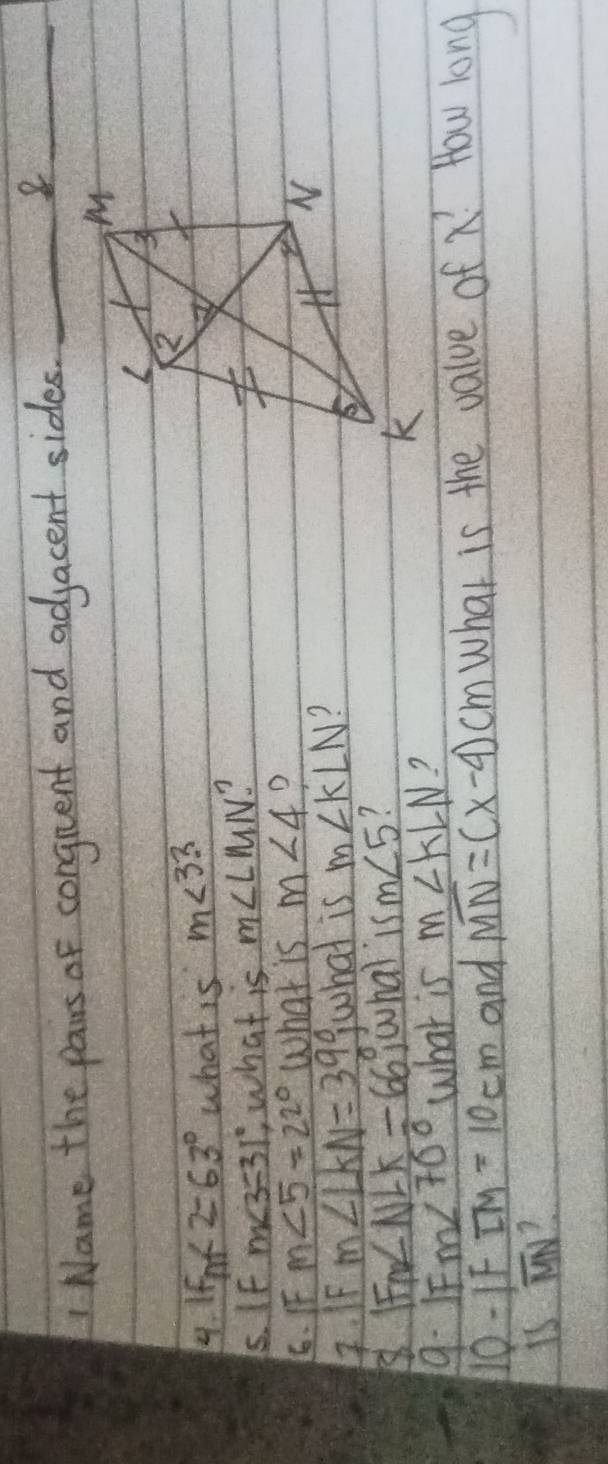 1 Name the pairs of congruent and adjacent sides. ____ & ____
M
L
2
3
1
N
4
5
K
4. IF m<2=63° what is m<3?
5. IF m<3=31°, what is m<LMN?
6. IF m<5=22° what is m<4?
7. IF m<LKN=39°, what is m<KLN?
8. IFm<NLK-66°, what is m<5?
9. IFm<70° what is m<KLN?
10-IF LM=10cm and MN=(x-4)cm what is the value of x? How long
is MN?